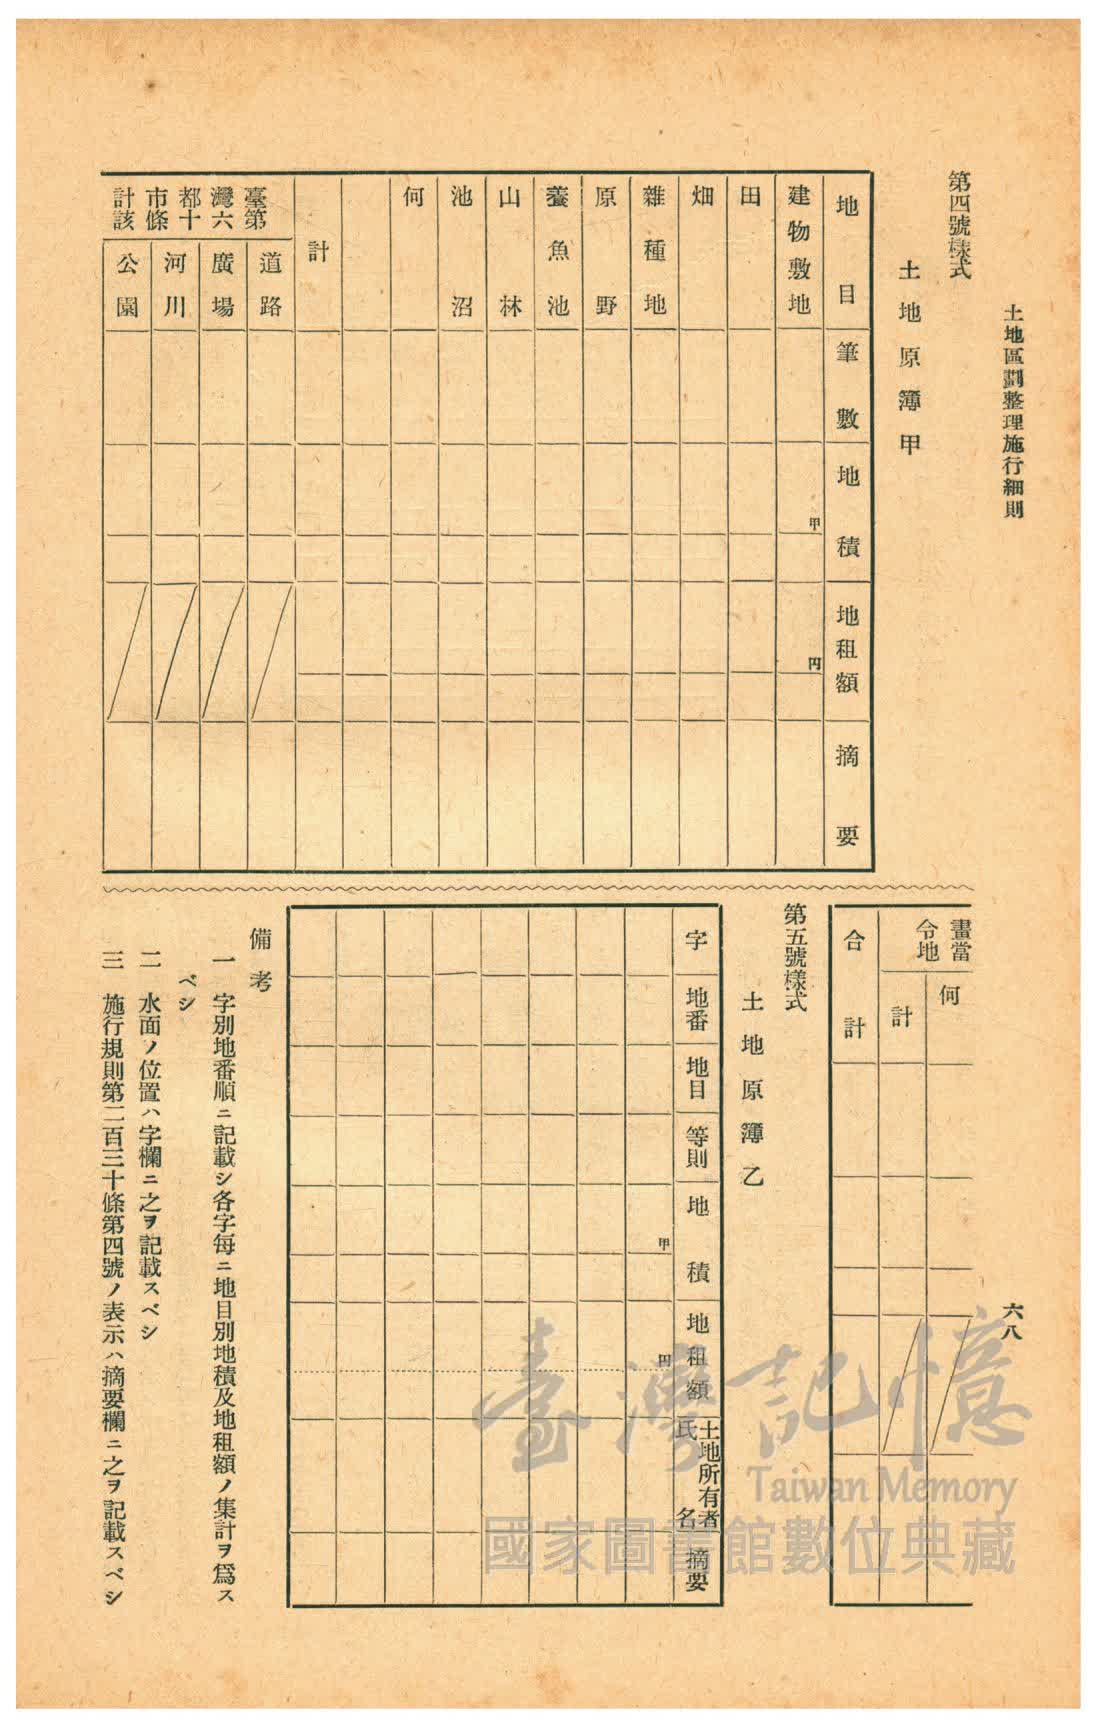 土地區劃整理施行細則
六八
第四號樣式
土地原簿甲
地目
筆數
地積
地租額
摘要
建物敷地
甲
円
田
畑
雜種地
原野
養魚池
山林
池沼
何
計
臺灣都市計
第六十條該
道路
廣場
河川
公園
畫
當地
令
何
計
合計
第五號樣式
土地原簿乙
字
地番
地目
等則
地積
地租額
土地所有者
氏名
摘要
甲
円
備考
一 字別地番順ニ記載シ各字每ニ地目別地積及地租額ノ集計ヲ爲ス
ベシ
二 水面ノ位置ハ字欄ニ之ヲ記載スベシ
三 施行規則第二百三十條第四號ノ表示ハ摘要欄ニ之ヲ記載スベシ
臺灣記憶
Taiwan Memory
國家圖書館數位典藏